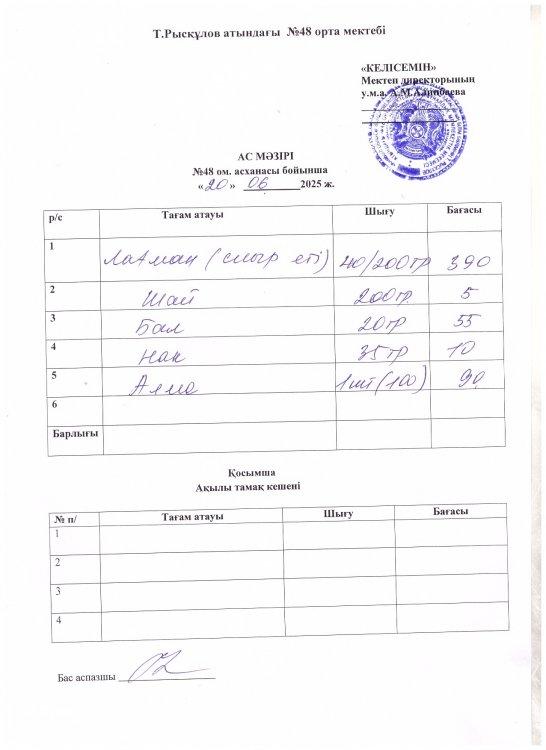 Т.Рысқұлов атындағы №48 орта мектебі
«КЕЛІСЕМІН»
Мектеп директорының
у.м.а. А.М.Алимбаева
АС МӘЗІРІ
№48 ом. асханасы бойынша
«20» 06 2025 ж.
р/с Тағам атауы Шығу Бағасы
1 Лағман (сиыр еті) 40/200гр 390
2 Шай 200гр 5
3 Бал 20гр 55
4 Нан 35гр 10
5 Алма 1шт (100) 90
6
Барлығы
Қосымша
Ақылы тамақ кешені
№ п/ Тағам атауы Шығу Бағасы
1
2
3
4
Бас аспазшы